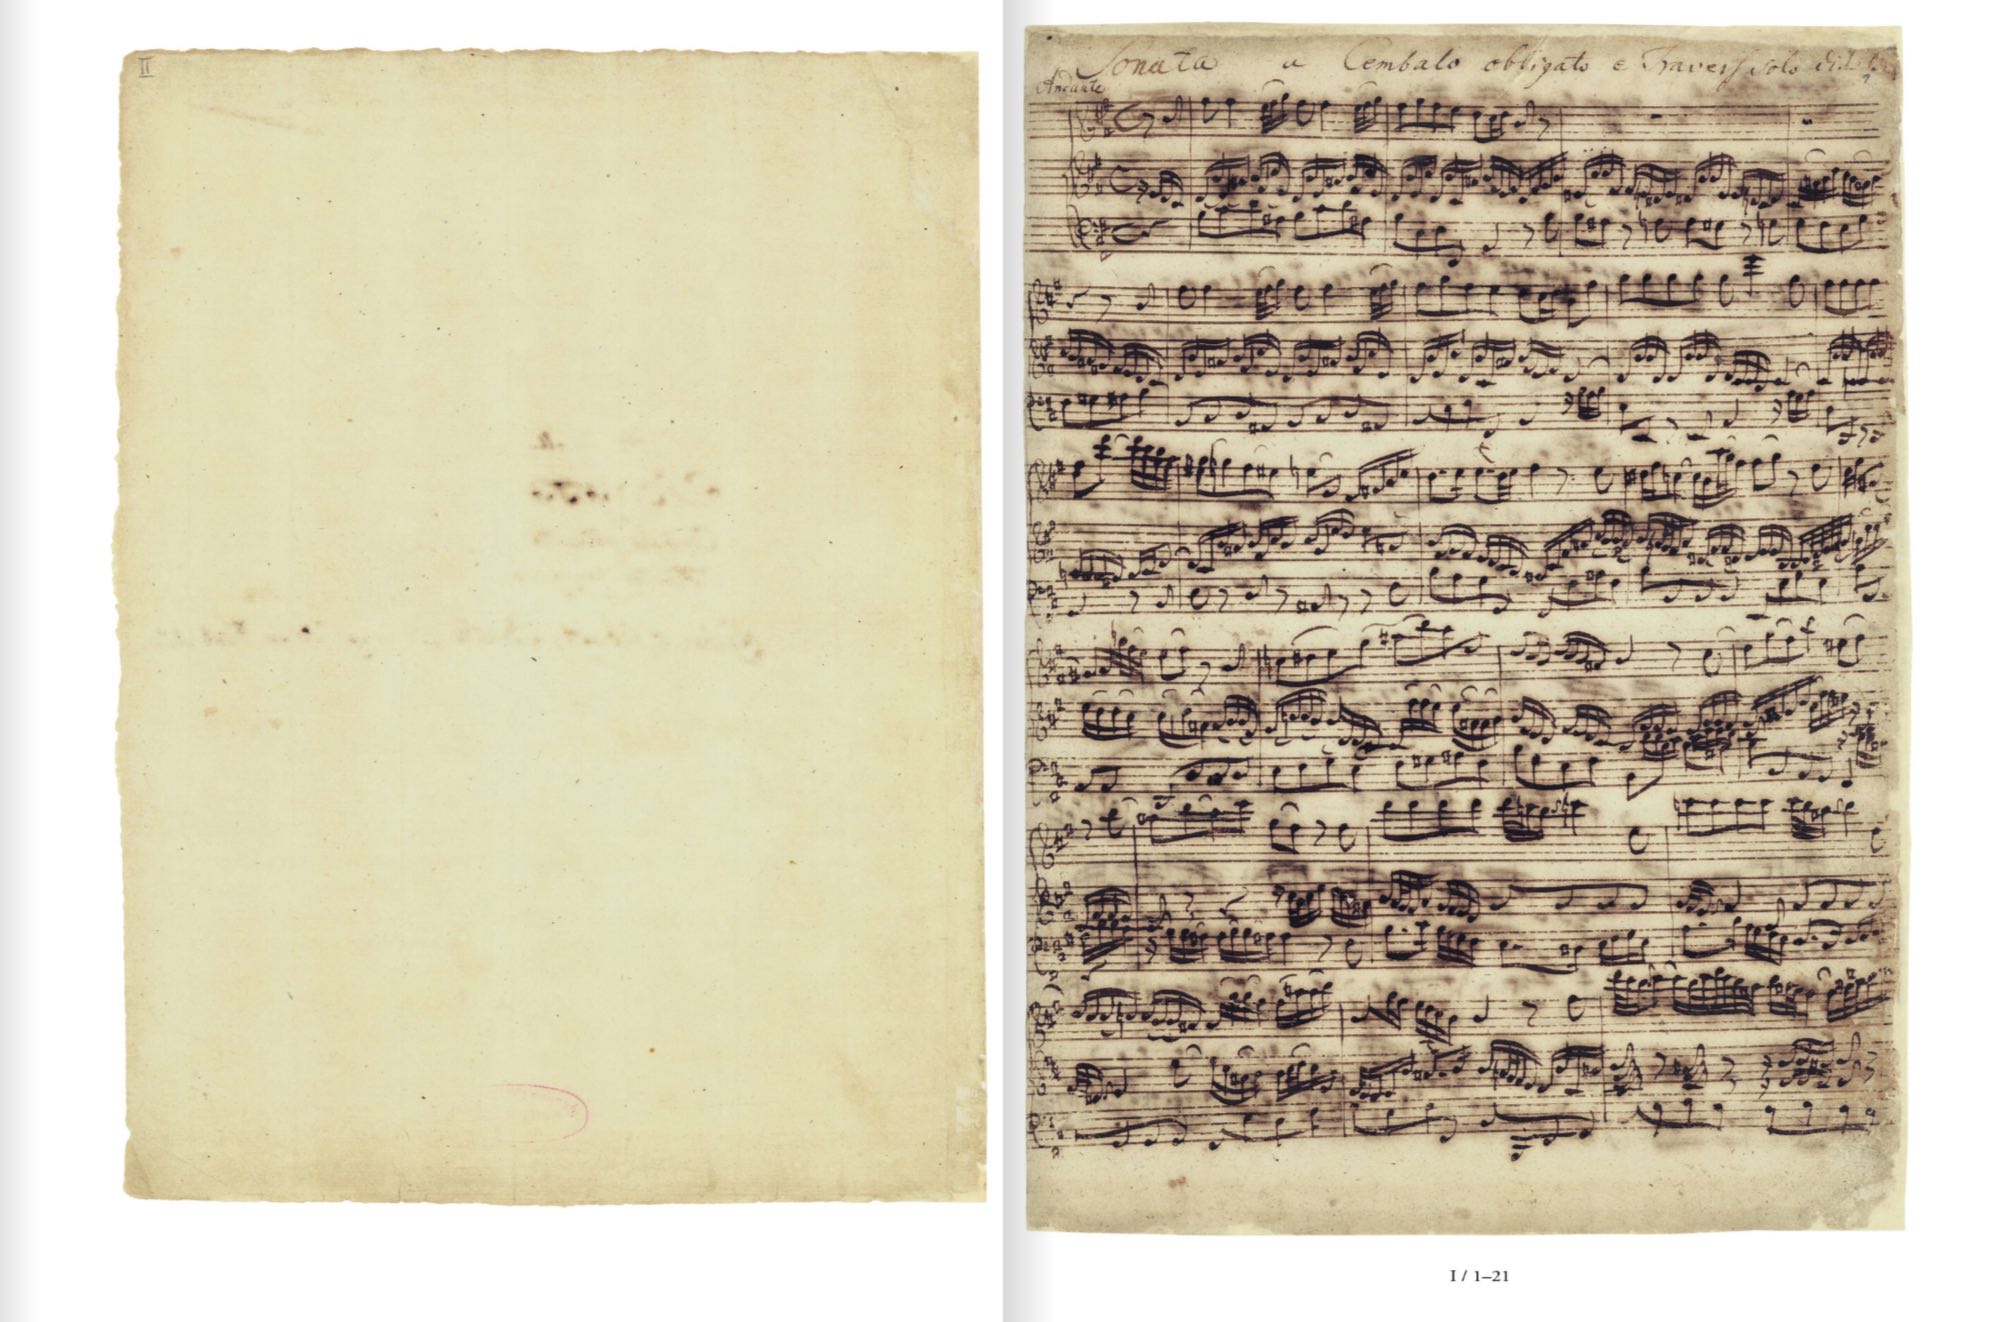 II
Sonata a Cembalo obligato e Travers solo di
Andante
I / 1–21